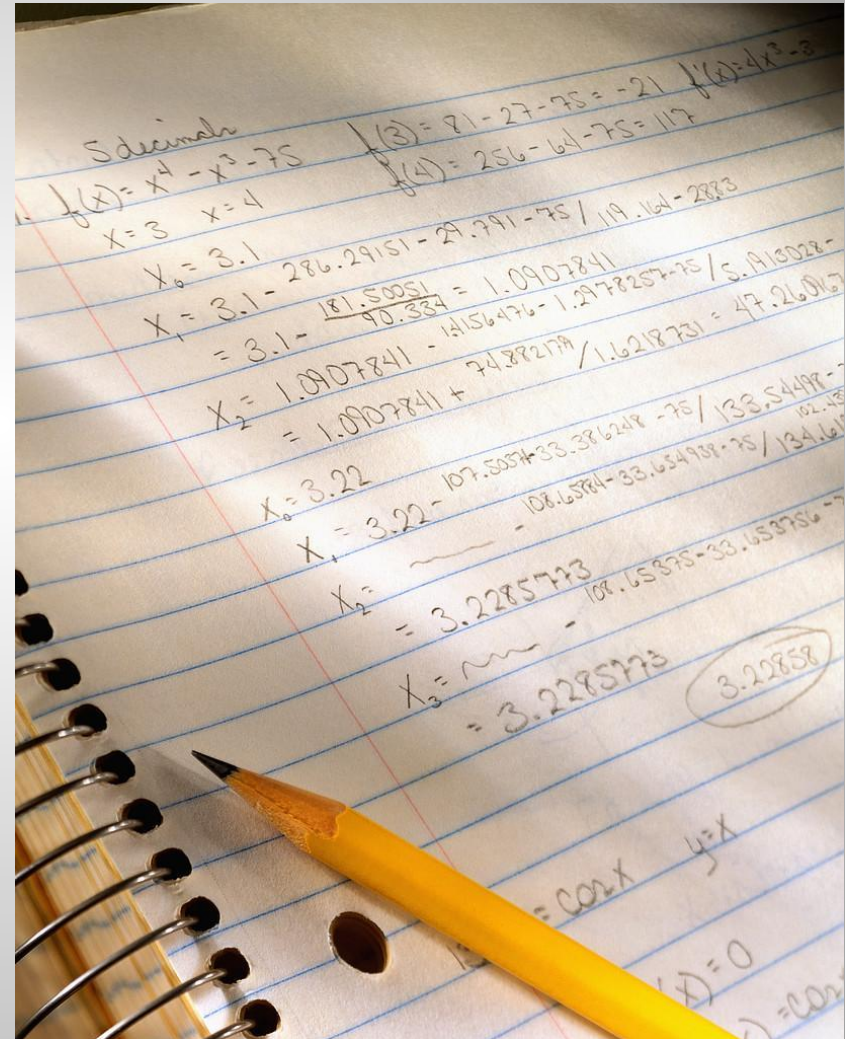 5 decimals
1. f(x) = x⁴ - x³ - 75 f(3) = 81 - 27 - 75 = -21 f'(x) = 4x³ - 3
x = 3 x = 4 f(4) = 256 - 64 - 75 = 117
x₀ = 3.1
x₁ = 3.1 - 286.29151 - 29.791 - 75 / 119.164 - 28.83
= 3.1 - 181.50051 / 90.334 = 1.0907841
x₂ = 1.0907841 - 1.4156476 - 1.2978257 - 75 / 5.1913028 -
= 1.0907841 + 74.882179 / 1.6218731 = 47.26
x₀ = 3.22
x₁ = 3.22 - 107.5037 - 33.386248 - 75 / 133.54498 -
x₂ = - 108.6584 - 33.654938 - 75 / 134.61
= 3.2285773
x₃ = - 108.65375 - 33.653756 - 7
= 3.2285773 3.22858
= cosx y = x
'(x) = 0
) = cos